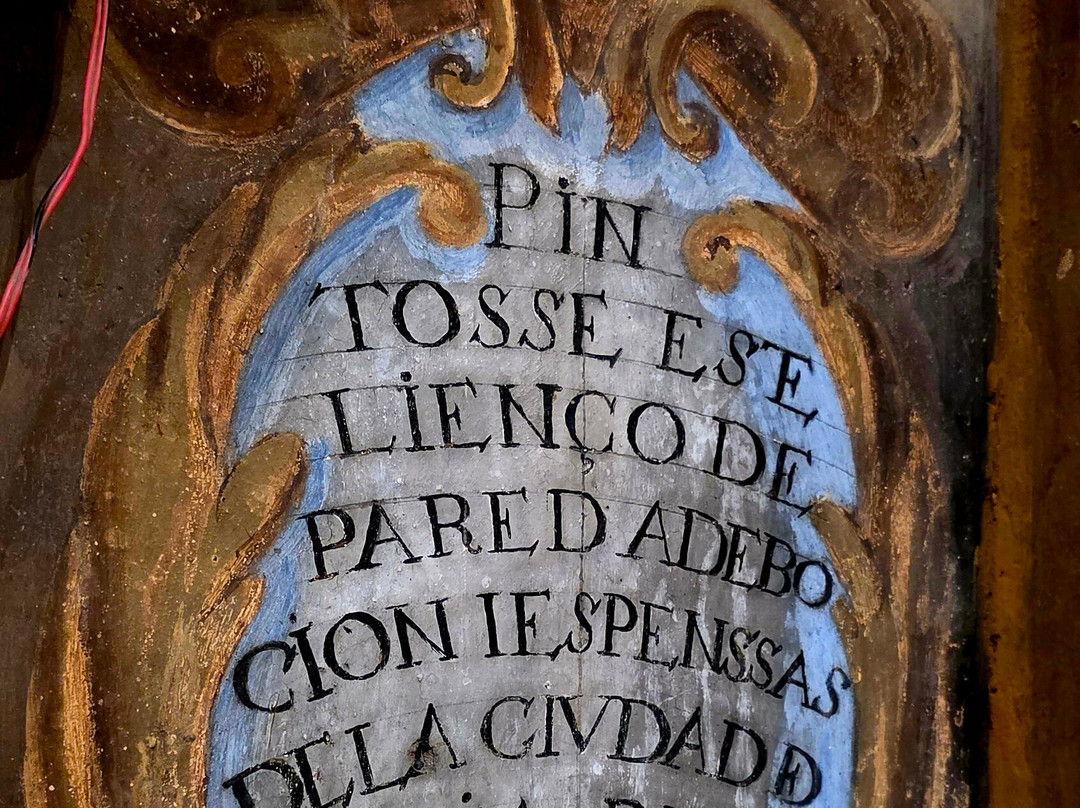 PiN
TOSSE ESTE
LiENÇO DE
PARED ADEBO
CION IESPENSSAS
DELA CIVDAD D